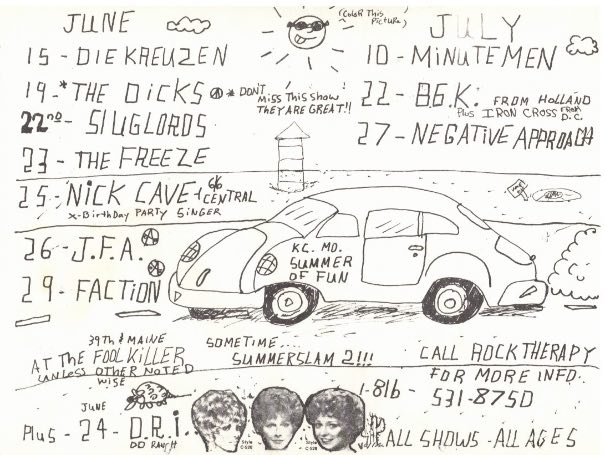 JUNE
15 - DIE KREUZEN
19 - * THE DICKS * DONT MISS THIS SHOW THEY ARE GREAT!!
22ND - SLUGLORDS
23 - THE FREEZE
25 - NICK CAVE + 66 CENTRAL
X-BIRTHDAY PARTY SINGER
26 - J.F.A.
29 - FACTION
(COLOR THIS PICTURE)
JULY
10 - MINUTEMEN
22 - B.G.K. FROM HOLLAND
PLUS IRON CROSS FROM D.C.
27 - NEGATIVE APPROACH
KC. MO.
SUMMER
OF FUN
39TH & MAINE
AT THE FOOLKILLER
UNLESS OTHER NOTED
WISE
SOMETIME....
SUMMERSLAM 2!!!
CALL ROCKTHERAPY
FOR MORE INFO..
1-816-531-8750
JUNE
PLUS - 24 - D.R.I.
DD RANCH
Style
C-526
Style
C-528
ALL SHOWS - ALL AGES